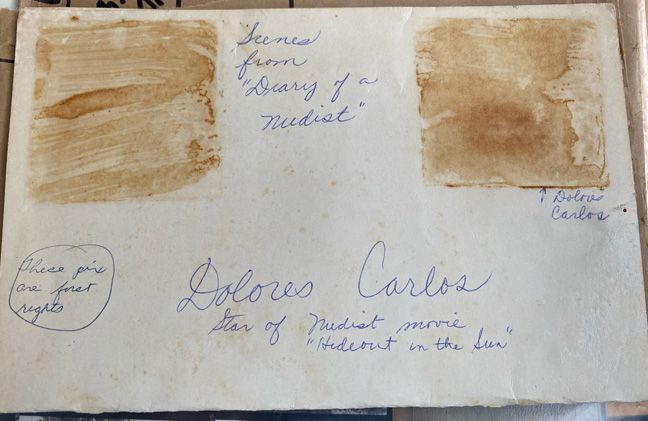 Scenes
from
"Diary of a
Nudist"
↑ Dolores
Carlos
These pix
are first
rights
Dolores Carlos
Star of Nudist movie
"Hideout in the Sun"